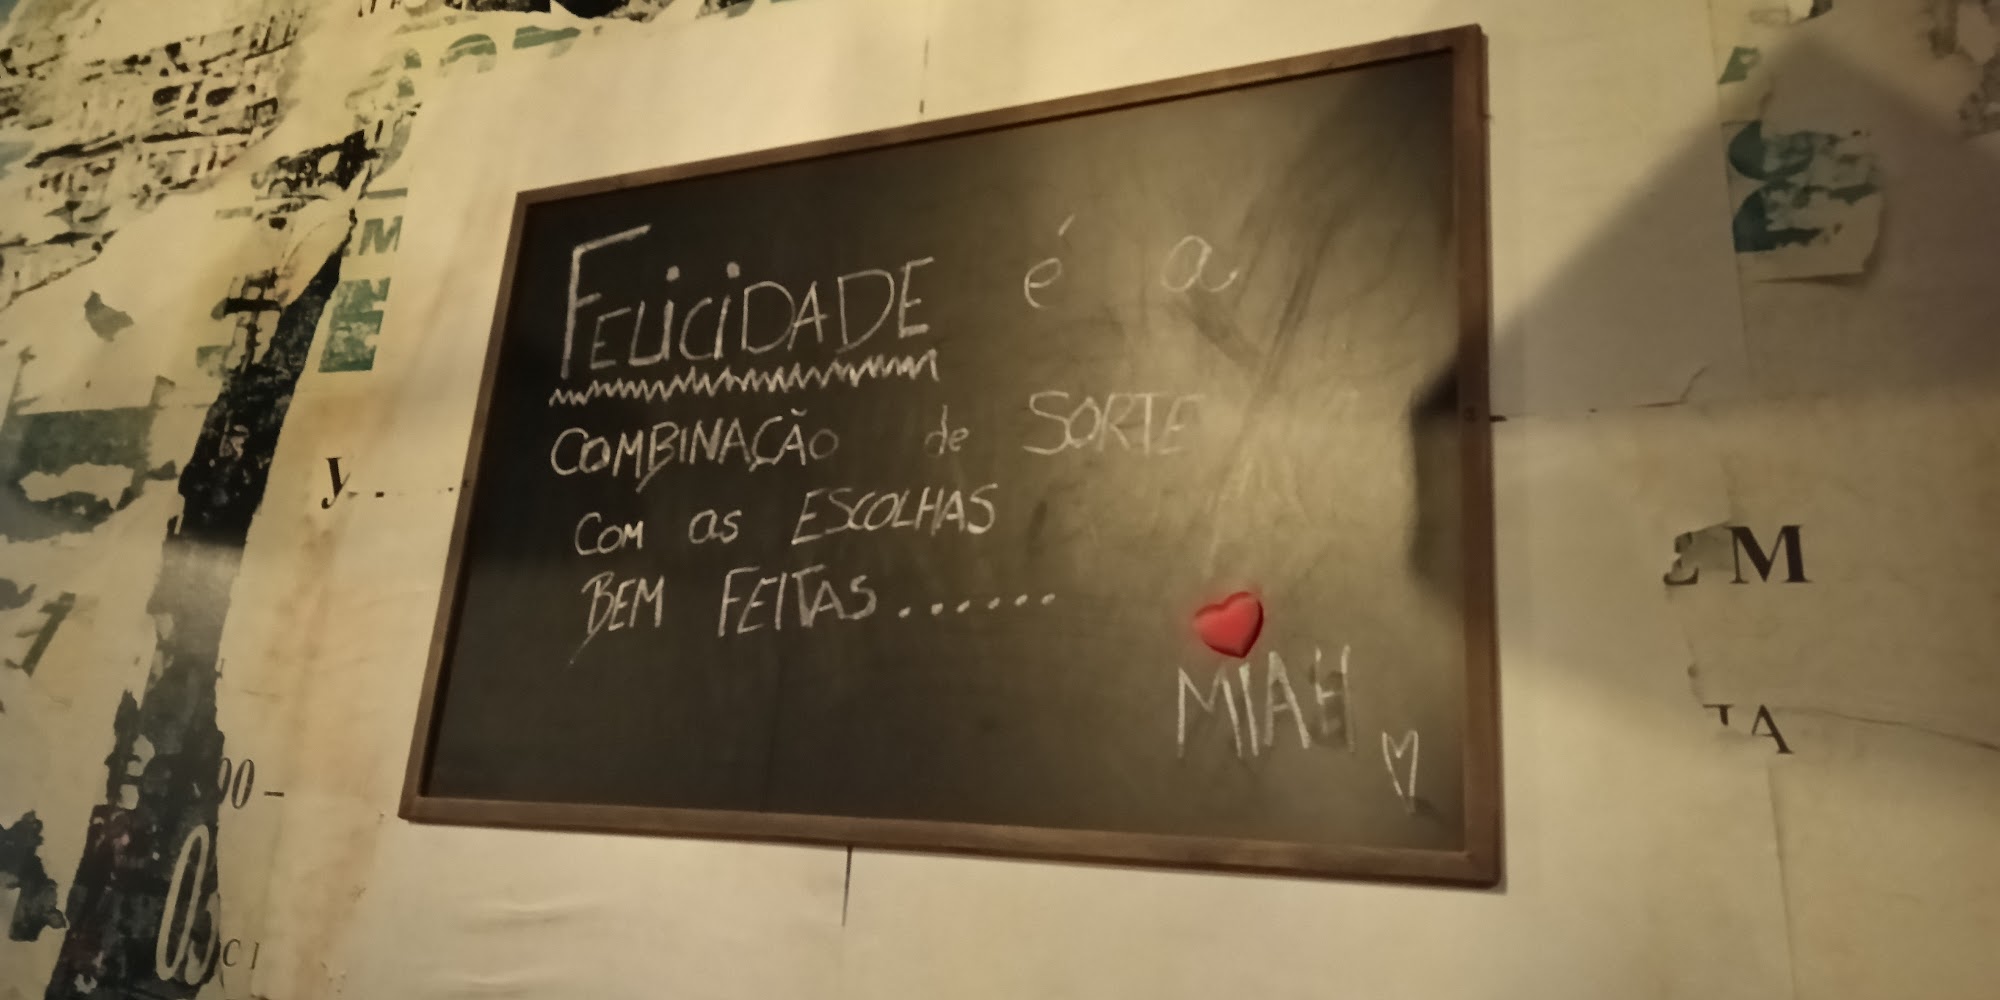 FELICIDADE é a
COMBINAÇÃO de SORTE
COM as ESCOLHAS
BEM FEITAS.......
MIAH
y.
EM
TA
00 –
CI